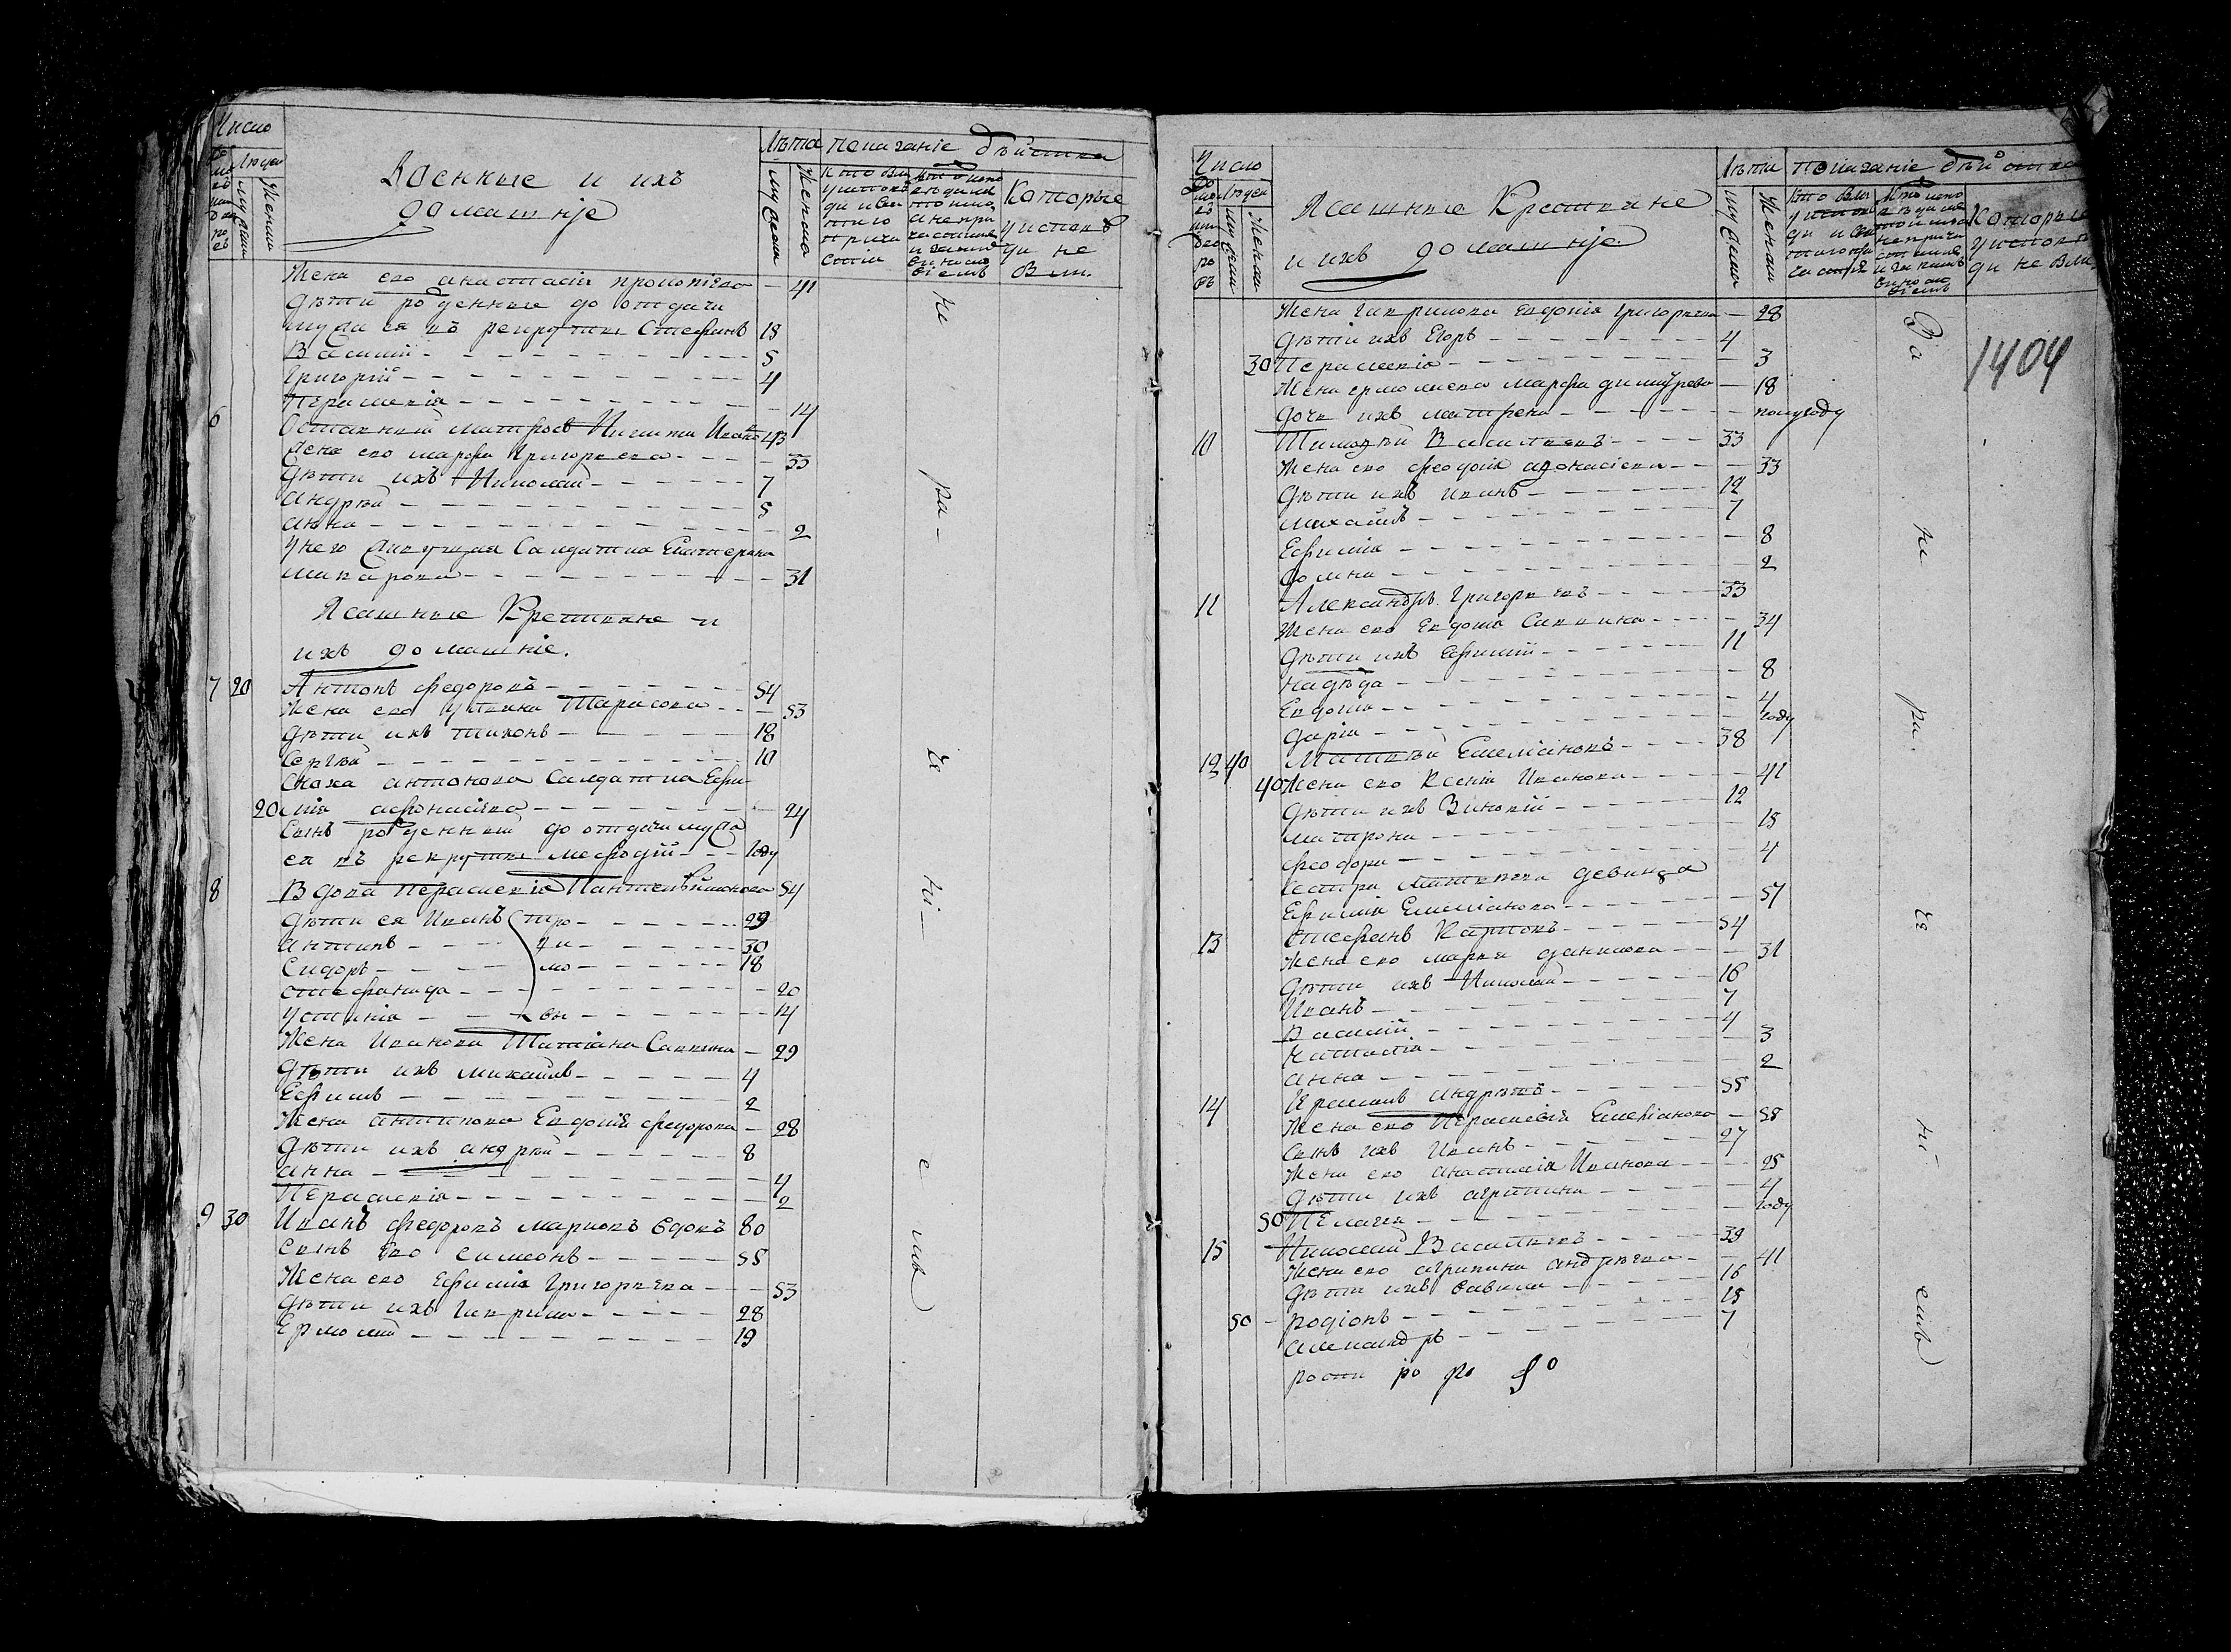 Число
Лѣта показаніе дѣйства
Людей
Военные и ихъ
домашніе
Которые
у исповѣ
ди не
были
Жена его анастасія прокопіева — 41
дѣти рожденные до отдачи
мужа ея въ рекруты Стефанъ 13
Василій 5
Григорій 4
Параскевія 14
6 Отставный матросъ Никита Ивановъ 43
Жена его марфа Григорьева 33
Дѣти ихъ Николай 7
андрей 5
анна 2
у него живущая Салдатка Екатерина
макарова 31
Ясашные Крестьяне и
ихъ домашніе.
7 20 Антонъ федоровъ 54
Жена его Ульяна Тарасова 53
дѣти ихъ тихонъ 18
Сергѣй 10
Сноха антонова Салдатка Ефи-
20 мія афонасіева 24
Сынъ рожденный до отдачи мужа
ея въ рекруты мефодій году
8 Вдова Параскевія Пантелѣймонова 54
дѣти ея Иванъ 29
антипъ 30
Сидоръ 18
стефанида 20
устинія 14
Жена Иванова Татіана Саввина 29
дѣти ихъ михайлъ 4
Ефимъ 2
Жена антипова Евдокія федорова 28
дѣти ихъ андрей 8
анна 4
Параскевія 2
9 30 Иванъ федоровъ марковъ вдовъ 80
сынъ его симеонъ 55
Жена его Ефимія Григорьева 53
дѣти ихъ Гаврила 28
Ермолай 19
не
ра
че
ні
е
мъ
Число
Лѣта показаніе дѣйства
Людей
Ясашные Крестьяне
и ихъ домашніе
Которые
у исповѣ
ди не были
1404
Жена гаврилова Евдокія григорьева 28
дѣти ихъ Егоръ 4
30 Параскевія 3
Жена ермолаева марфа димитріева 18
дочь ихъ матрена полугоду
10 Тимофѣй Васильевъ 33
Жена его феодосія афонасіева 33
дѣти ихъ иванъ 12
михайлъ 7
Ефимія 8
домна 2
11 Александръ Григорьевъ 33
Жена его Евдокія Саввина 34
дѣти ихъ Ефимій 11
надежда 8
Евдокія 4
дарія году
12 40 Матвѣй Емеліановъ 38
40 Жена его Ксенія Иванова 41
дѣти ихъ Зиновій 12
матрона 15
феодора 4
Сестра матвѣева девица
Ефимія Емеліанова 57
13 Стефанъ Карповъ 54
Жена его марья данилова 31
дѣти ихъ Николай 16
Иванъ 7
Василій 4
Наталія 3
анна 2
14 Герасимъ андрѣевъ 55
Жена его Параскевія Емеліанова 58
Сынъ ихъ Иванъ 27
Жена его анастасія Иванова 25
дѣти ихъ агрипина 4
50 Пелагея году
15 Николай Васильевъ 39
Жена его агрипина андрѣева 41
дѣти ихъ вавила 16
50 родіонъ 15
александръ 7
За
не
ра
че
ні
емъ